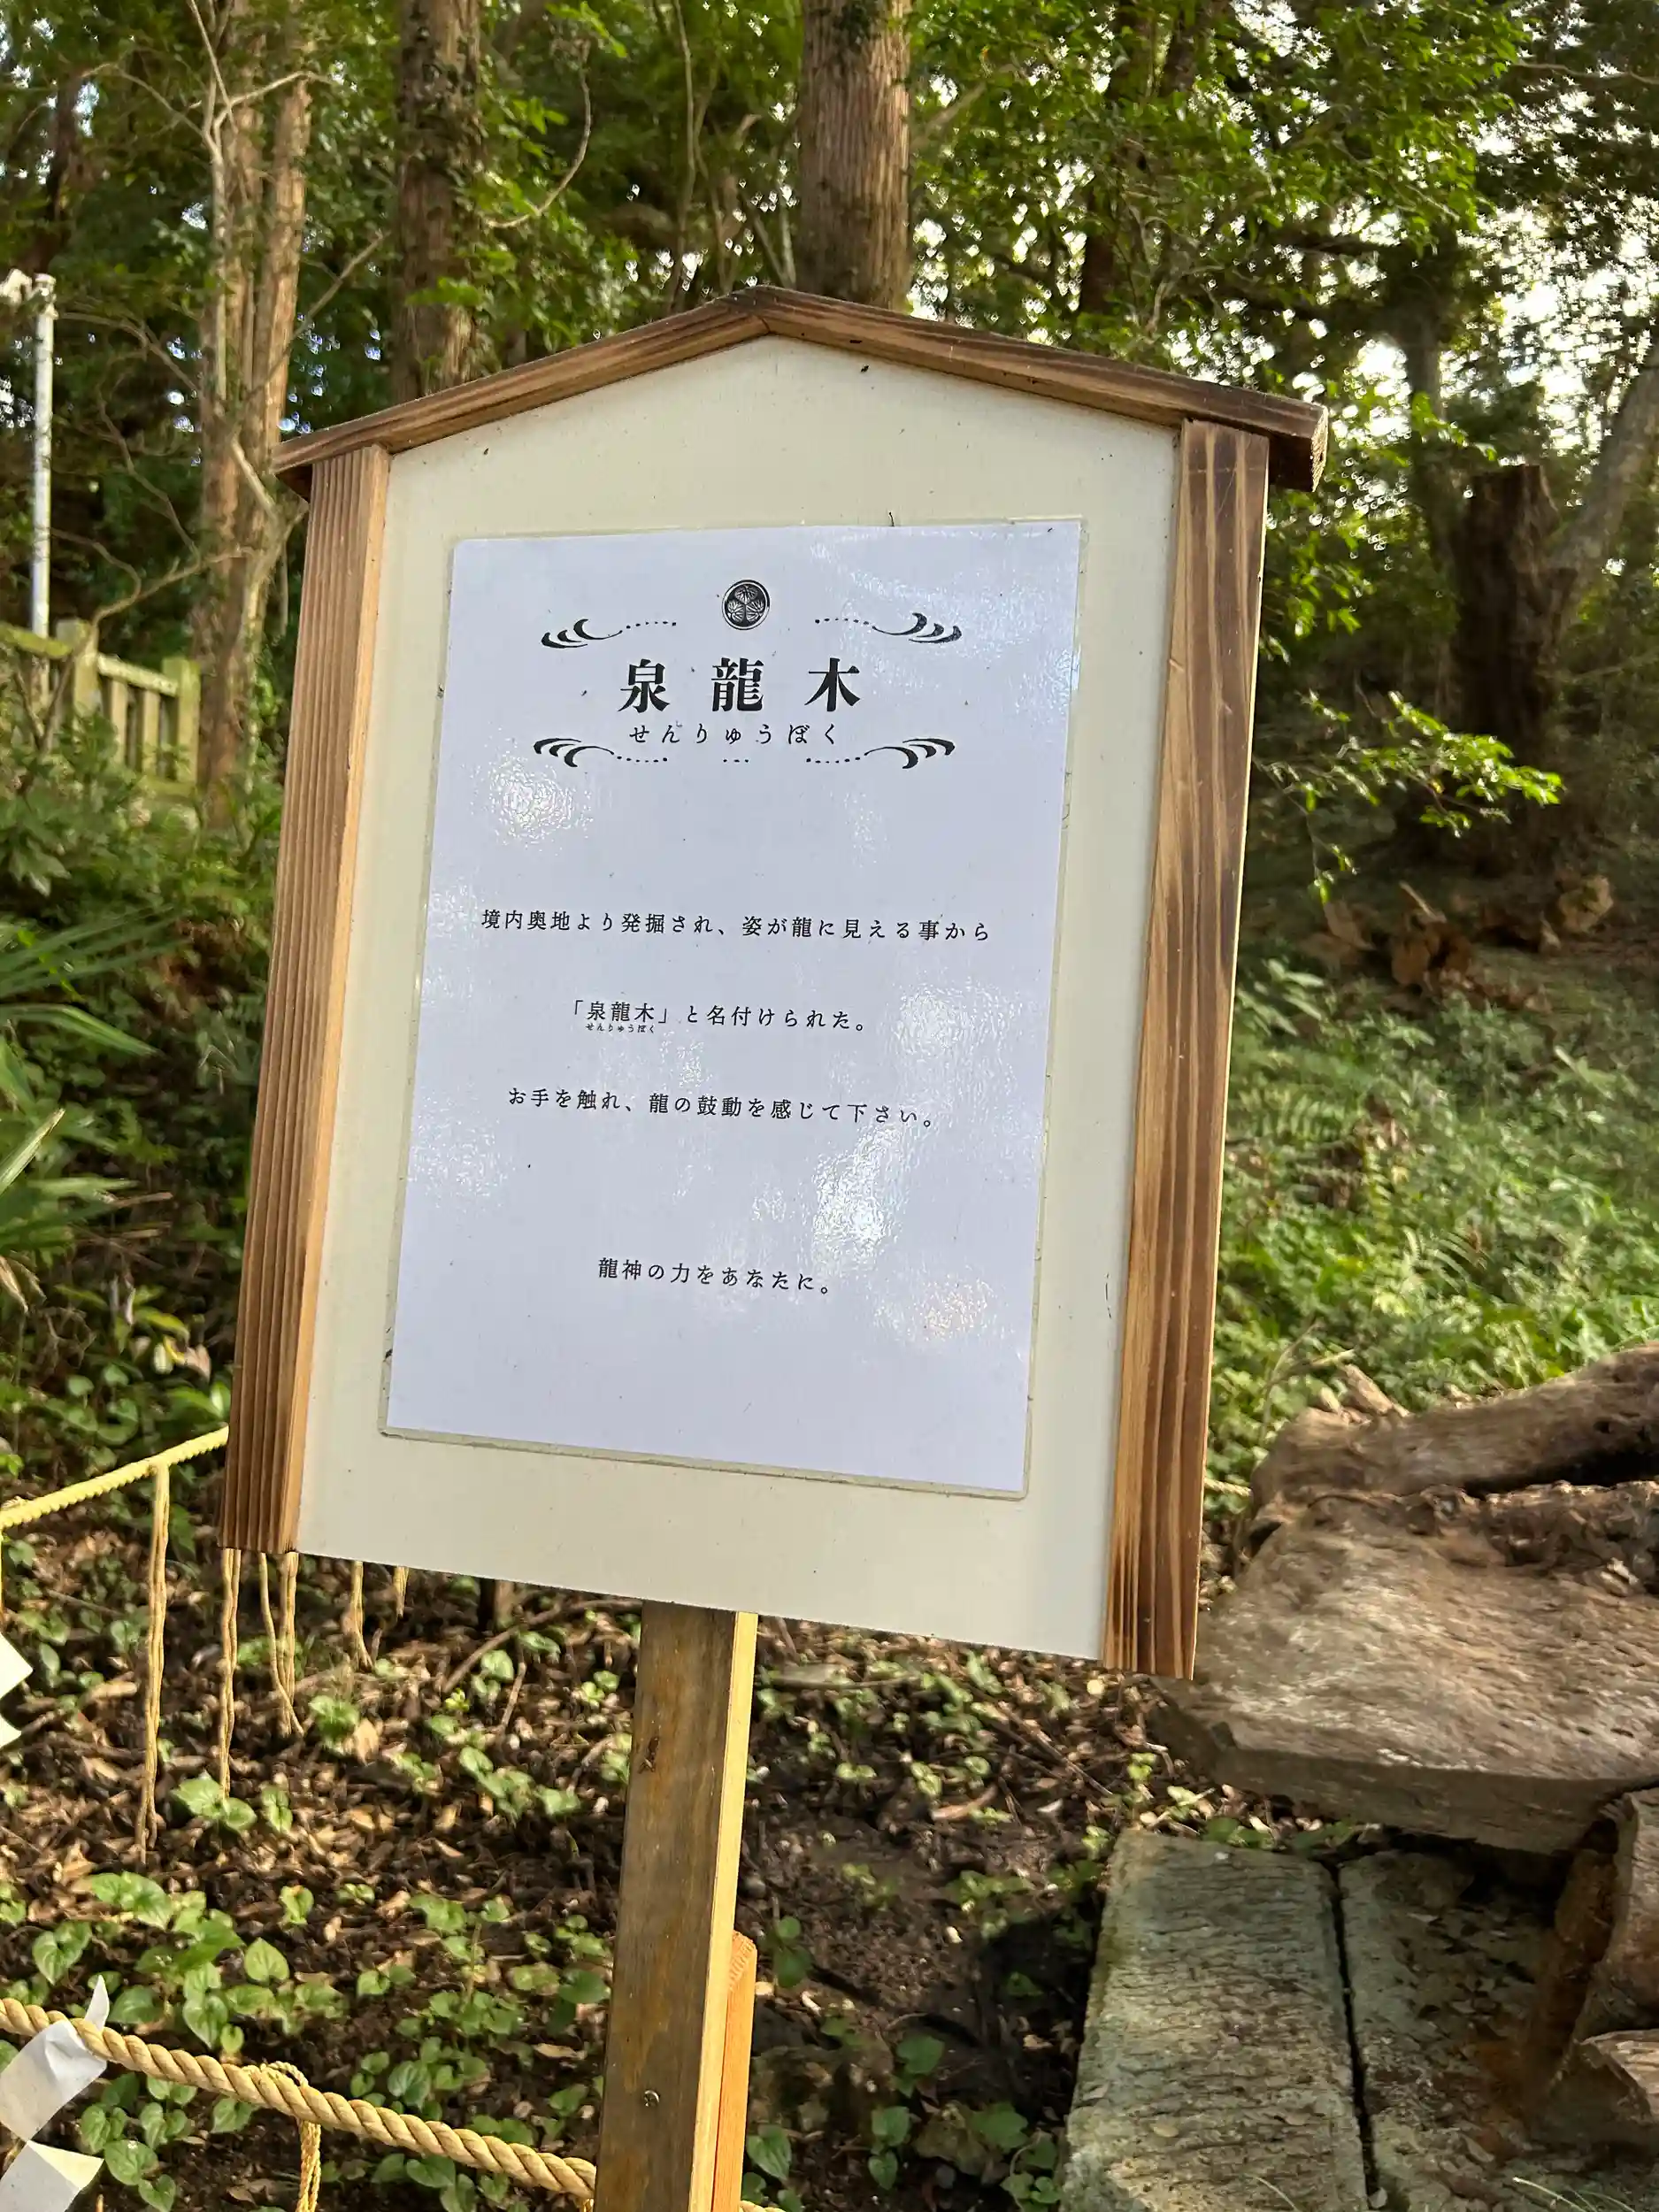 泉龍木
せんりゅうぼく
境内奥地より発掘され、姿が龍に見える事から
「泉龍木」と名付けられた。
せんりゅうぼく
お手を触れ、龍の鼓動を感じて下さい。
龍神の力をあなたに。